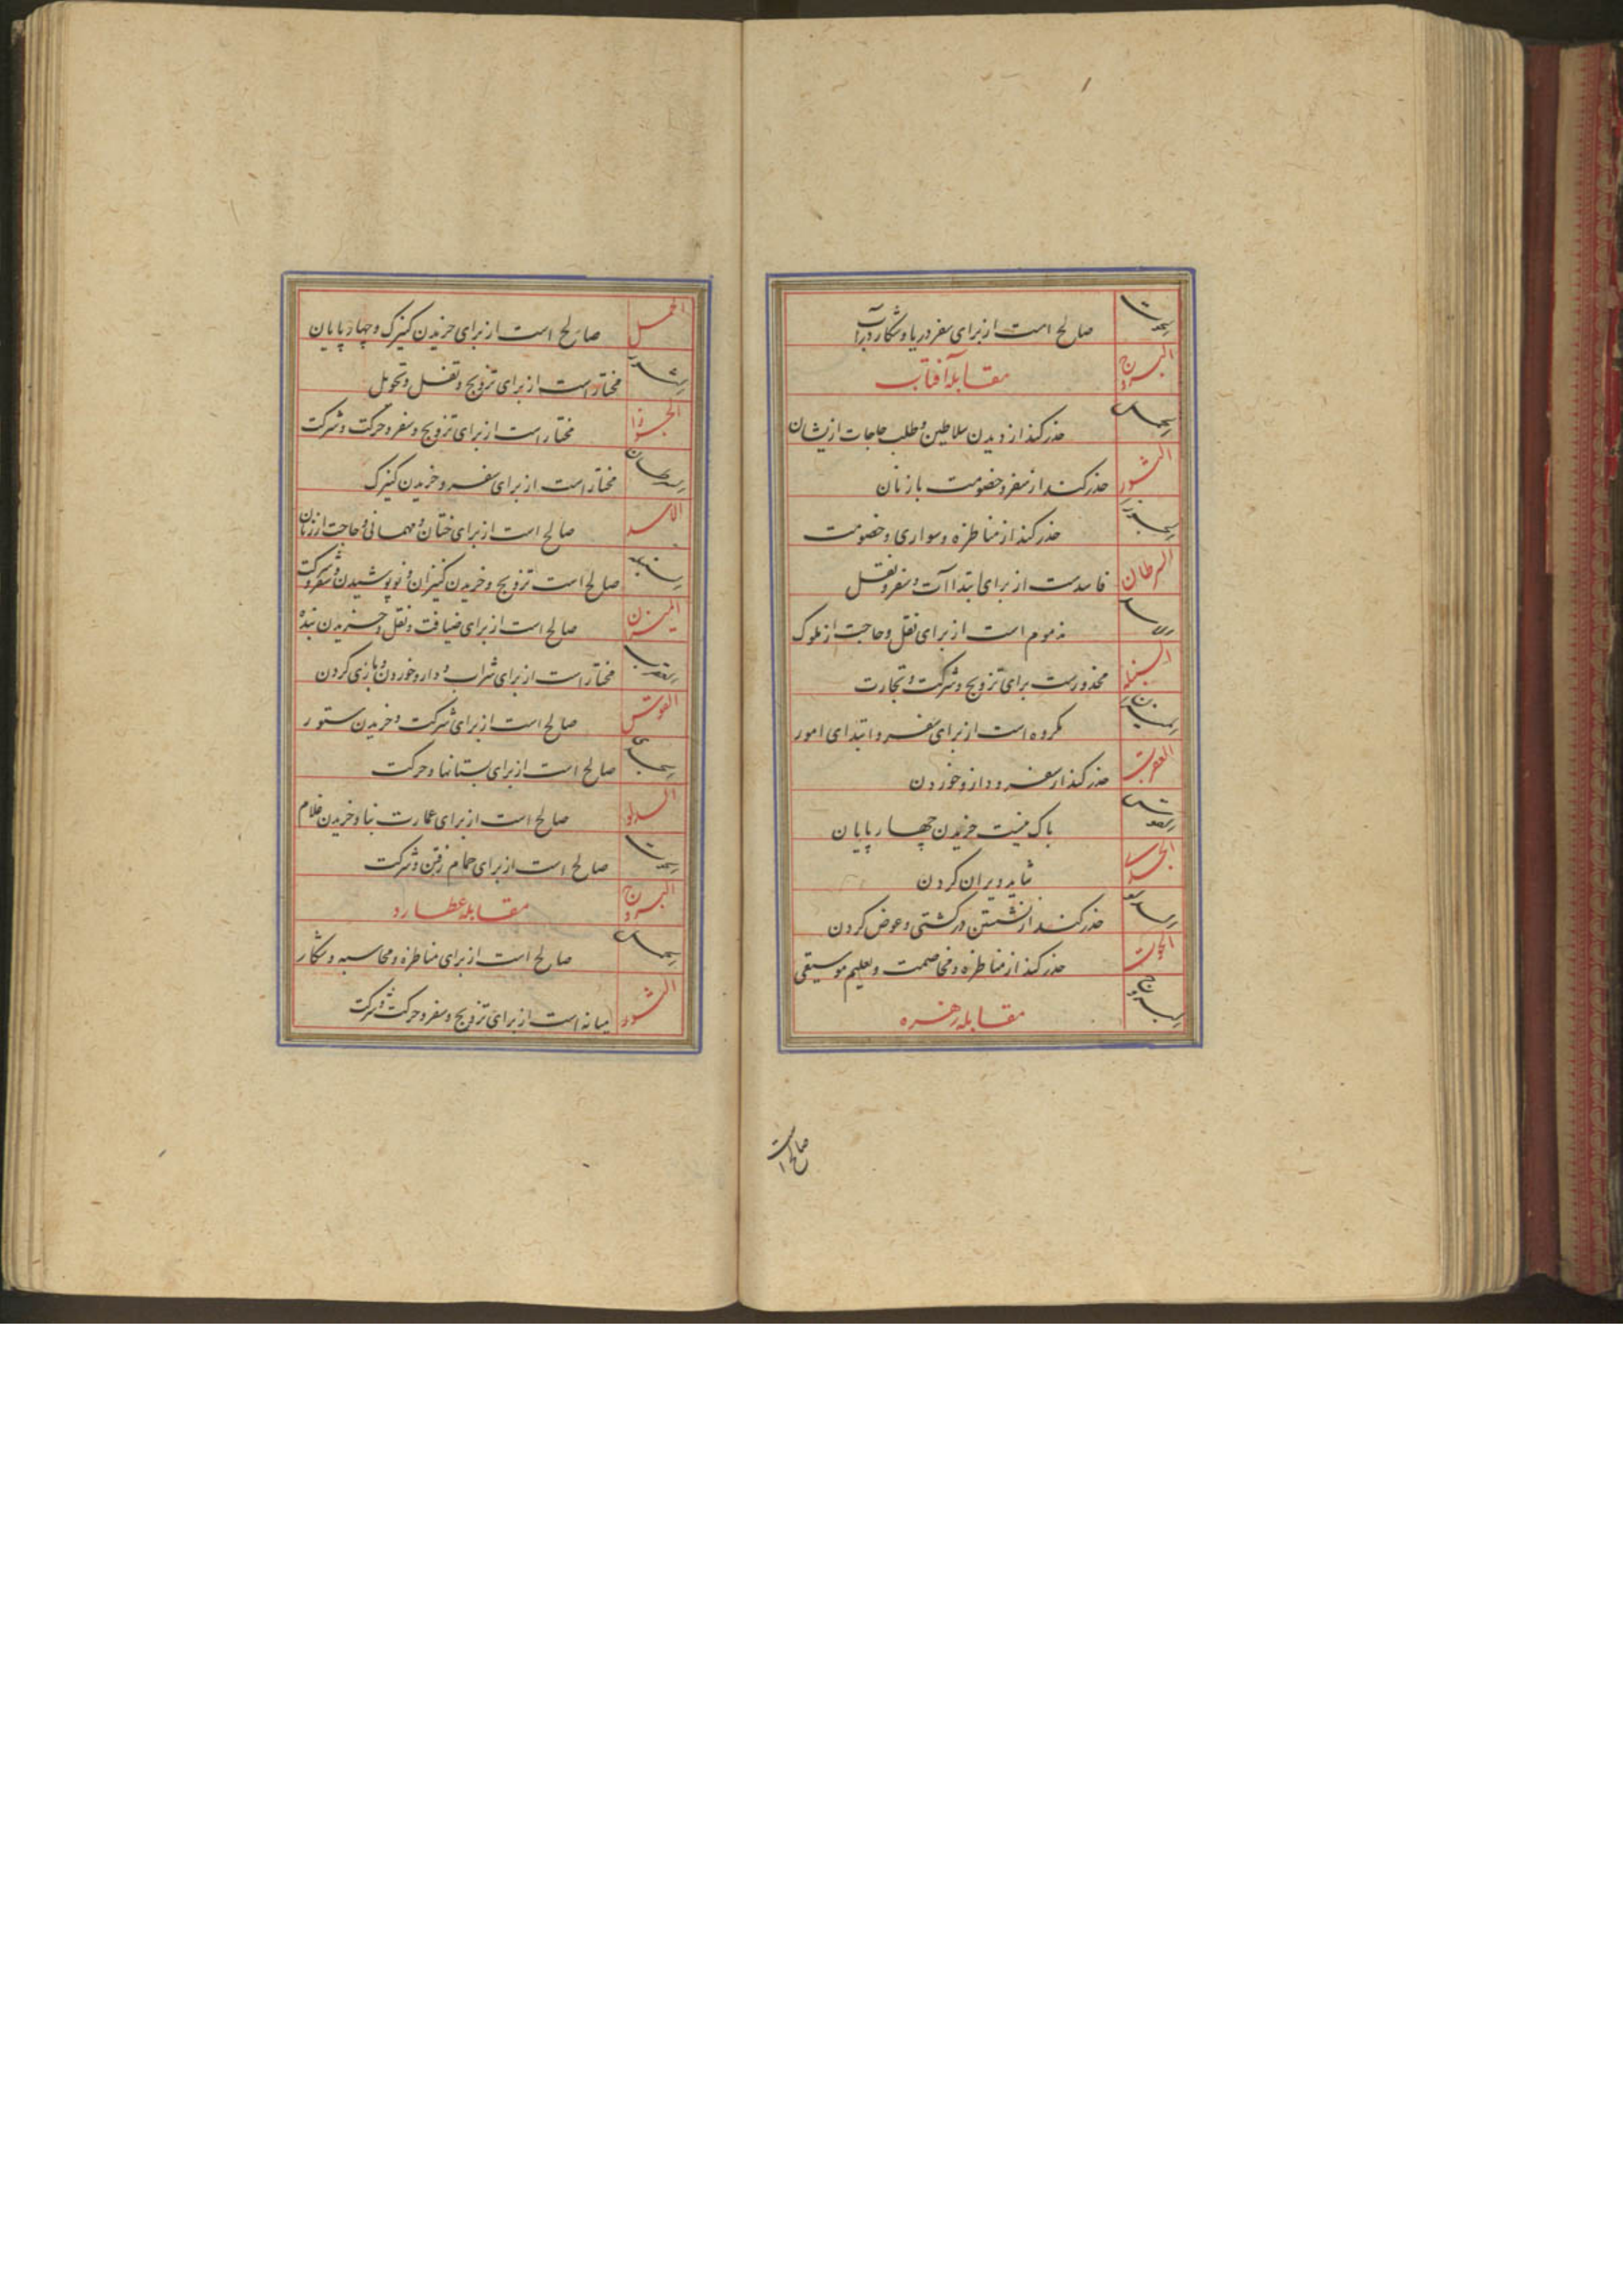 الحوت صالح است از برای سفر دریا و شکار در آب
البروج مقابله آفتاب
الحمل حذر کند از دیدن سلاطین و طلب حاجات ازیشان
الثور حذر کند از سفر و خصومت با زنان
الجوزا حذر کند از مناظره و سواری و خصومت
السرطان فاسدست از برای ابتداآت و سفر و نقل
الاسد مذموم است از برای نقل و حاجت از ملوک
السنبله محذورست برای تزویج و شرکت و تجارت
المیزان مکروه است از برای سفر و ابتدای امور
العقرب حذر کند از سفر و دارو خوردن
القوس باک نیست خریدن چهارپایان
الجدی شاید ویران کردن
الدلو حذر کند از نشستن در کشتی و عوض کردن
الحوت حذر کند از مناظره و مخاصمت و تعلیم موسیقی
البروج مقابله زهره
صالح است
الحمل صالح است از برای خریدن کنیزک و چهارپایان
الثور مختار است از برای تزویج و نقل و تحویل
الجوزا مختار است از برای تزویج و سفر و حرکت و شرکت
السرطان مختار است از برای سفر و خریدن کنیزک
الاسد صالح است از برای ختان و مهمانی و حاجت از زنان
السنبله صالح است تزویج و خریدن کنیزان و نو پوشیدن و سفر و شرکت
المیزان صالح است از برای ضیافت و نقل و خریدن بنده
العقرب مختار است از برای شراب و دارو خوردن و بازی کردن
القوس صالح است از برای شرکت و خریدن ستور
الجدی صالح است از برای بستانها و حرکت
الدلو صالح است از برای عمارت بنا و خریدن غلام
الحوت صالح است از برای حمام رفتن و شرکت
البروج مقابله عطارد
الحمل صالح است از برای مناظره و محاسبه و شکار
الثور میانه است از برای تزویج و سفر و حرکت و شرکت